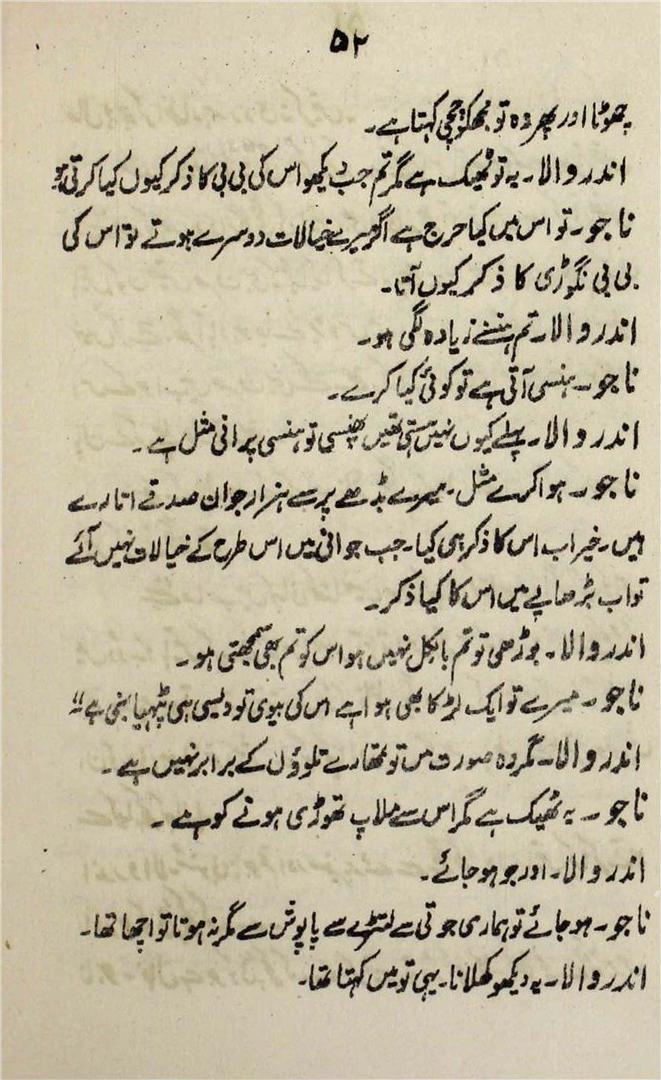 ۵۲
چھوٹا اور پھر وہ تو مجھکو چچی کہتا ہے۔
اندر والا۔ یہ تو ٹھیک ہے مگر تم جب دیکھو اس کی بی بی کا ذکر کیوں کیا کرتی ہو
ناجو۔ تو اس میں کیا حرج ہے اگر میرے خیالات دوسرے ہوتے تو اس کی
بی بی نگوڑی کا ذکر کیوں آتا۔
اندر والا۔ تم ہنسنے زیادہ لگی ہو۔
ناجو۔ ہنسی آتی ہے تو کوئی کیا کرے۔
اندر والا۔ پہلے کیوں نہیں ہنستی تھیں پھنسی تو ہنسی پرانی مثل ہے۔
ناجو۔ ہوا کرے مثل۔ میرے بڈھے پر سے ہزار جوان صدقے اتارے
ہیں۔ خیر اب اس کا ذکر ہی کیا۔ جب جوانی میں اس طرح کے خیالات نہیں آئے
تو اب بڑھاپے میں اس کا کیا ذکر۔
اندر والا۔ بوڑھی تو تم بالکل نہیں ہو اس کو تم بھی سمجھتی ہو۔
ناجو۔ میرے تو ایک لڑکا بھی ہوا ہے اس کی بیوی تو ویسی ہی ٹپہیا بنی ہے ‘‘
اندر والا۔ مگر وہ صورت میں تو تمھارے تلوؤں کے برابر نہیں ہے۔
ناجو۔ یہ ٹھیک ہے مگر اس سے ملاپ تھوڑی ہونے کو ہے۔
اندر والا۔ اور جو ہو جائے۔
ناجو۔ ہو جائے تو ہماری جوتی سے لنڈے سے پاپوش سے مگر نہ ہوتا تو اچھا تھا۔
اندر والا۔ یہ دیکھو کھلا نا۔ یہی تو میں کہتا تھا۔